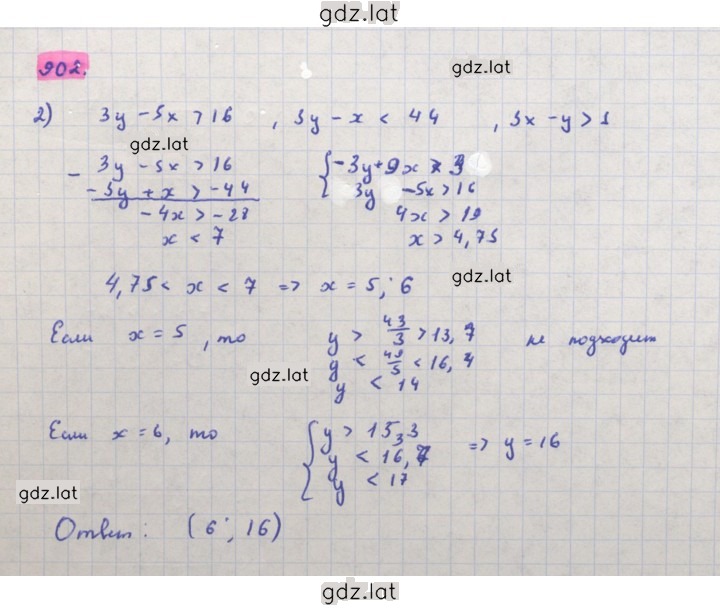 gdz.lat
902.
gdz.lat
2) 3y - 5x > 16 , 3y - x < 44 , 3x - y > 1
gdz.lat
- 3y - 5x > 16
-3y + x > -44
-4x > -28
x < 7
{ -3y + 9x > 3
3y - 5x > 16
4x > 19
x > 4,75
4,75 < x < 7 => x = 5; 6
gdz.lat
Если x = 5, то y > 43/3 > 13,7 не подходит
y < 49/5 < 16,4
gdz.lat
y < 14
Если x = 6, то { y > 15,3 => y = 16
y < 16,7
y < 17
gdz.lat
Ответ: (6; 16)
gdz.lat